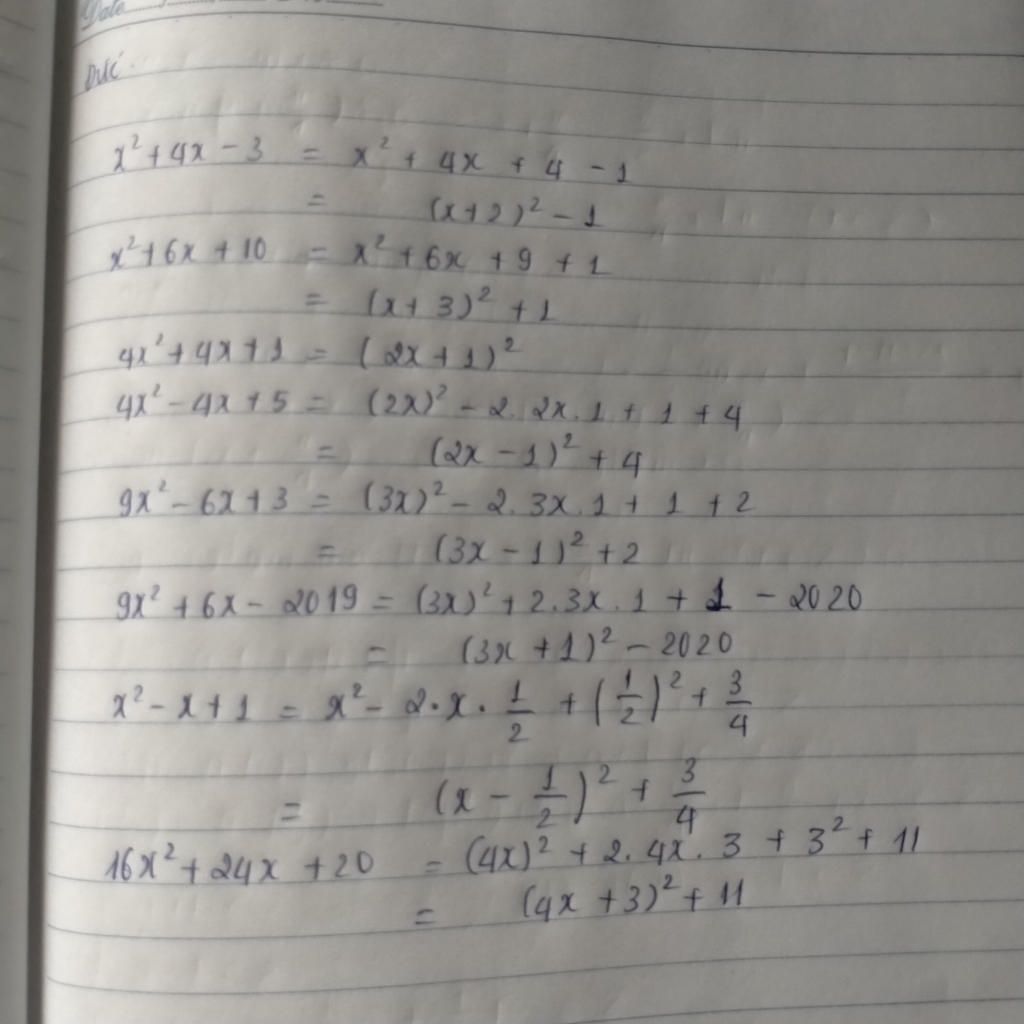 Date
Đức
x² + 4x - 3 = x² + 4x + 4 - 1
= (x+2)² - 1
x² + 6x + 10 = x² + 6x + 9 + 1
= (x + 3)² + 1
4x² + 4x + 1 = (2x + 1)²
4x² - 4x + 5 = (2x)² - 2. 2x. 1 + 1 + 4
= (2x - 1)² + 4
9x² - 6x + 3 = (3x)² - 2. 3x. 1 + 1 + 2
= (3x - 1)² + 2
9x² + 6x - 2019 = (3x)² + 2. 3x. 1 + 1 - 2020
= (3x + 1)² - 2020
x² - x + 1 = x² - 2 · x · 1/2 + (1/2)² + 3/4
= (x - 1/2)² + 3/4
16x² + 24x + 20 = (4x)² + 2. 4x. 3 + 3² + 11
= (4x + 3)² + 11